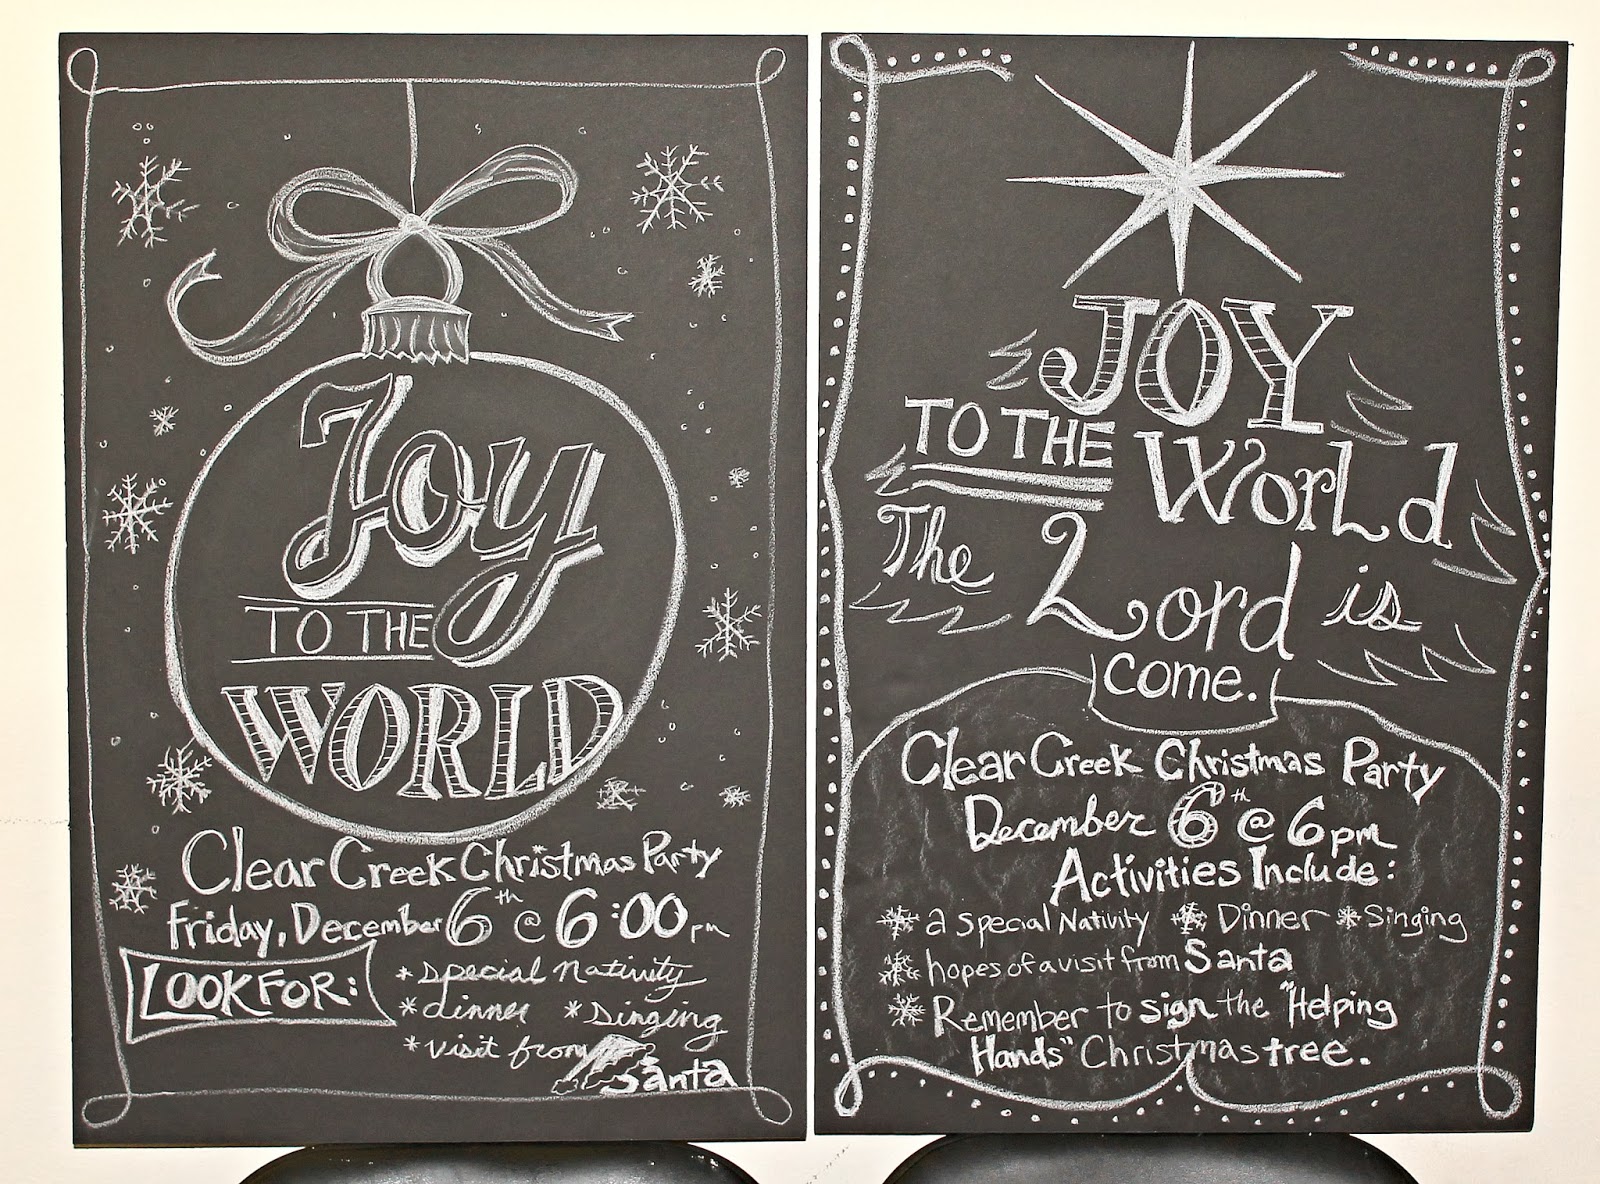 Joy
TO THE
WORLD
Clear Creek Christmas Party
Friday, December 6th @ 6:00 pm
LOOK FOR:
* special Nativity
* dinner * singing
* visit from
Santa
JOY
TO THE
WorLd
The Lord is
come.
Clear Creek Christmas Party
December 6th @ 6pm
Activities Include:
* a special Nativity * Dinner * Singing
* hopes of a visit from Santa
* Remember to sign the "Helping
Hands" Christmas tree.